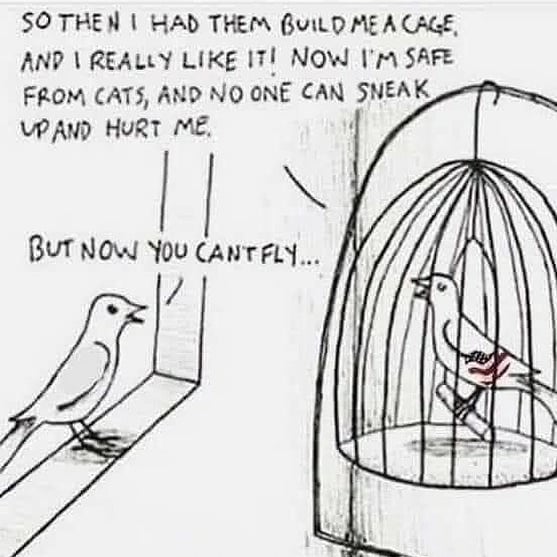 SO THEN I HAD THEM BUILD ME A CAGE,
AND I REALLY LIKE IT! NOW I'M SAFE
FROM CATS, AND NO ONE CAN SNEAK
UP AND HURT ME.
BUT NOW YOU CANT FLY...